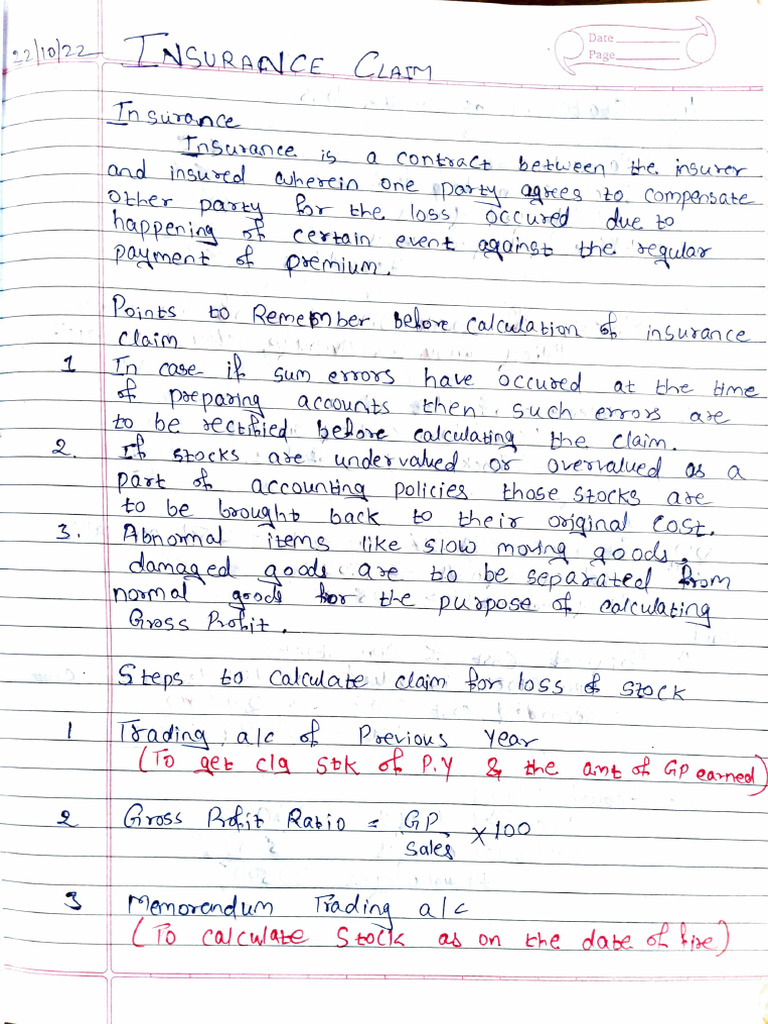 22/10/22 INSURANCE CLAIM
Date
Page
Insurance
Insurance is a contract between the insurer
and insured wherein one party agrees to compensate
other party for the loss occured due to
happening of certain event against the regular
payment of premium.
Points to Remember before calculation of insurance
claim
1 In case if sum errors have occured at the time
of preparing accounts then such errors are
to be rectified before calculating the claim.
2. If stocks are undervalued or overvalued as a
part of accounting policies those stocks are
to be brought back to their original cost.
3. Abnormal items like slow moving goods,
damaged goods are to be separated from
normal goods for the purpose of calculating
Gross Profit.
Steps to calculate claim for loss of stock
1 Trading a/c of Previous Year
(To get clg stk of P.Y & the amt of GP earned)
2 Gross Profit Ratio = GP
Sales × 100
3 Memorandum Trading a/c
(To calculate stock as on the date of fire)